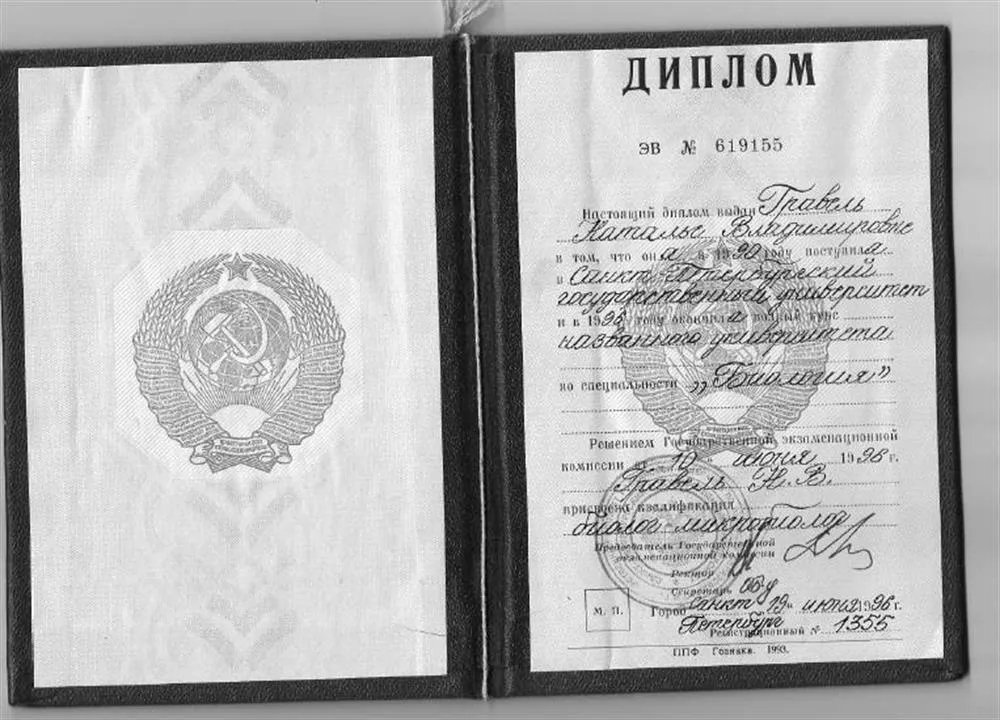 ДИПЛОМ
ЭВ № 619155
Настоящий диплом выдан Гравель
Наталье Владимировне
в том, что она в 1990 году поступила
в Санкт-Петербургский
государственный университет
и в 1996 году окончила полный курс
названного университета
по специальности „Биология”
Решением Государственной экзаменационной
комиссии от „10“ июня 1996 г.
Гравель Н. В.
присвоена квалификация
биолог-микробиолог
Председатель Государственной
экзаменационной комиссии
Ректор
Секретарь
М. П. Город Санкт- 19 „ июня 1996 г.
Петербург
Регистрационный № 1355
ППФ Гознака. 1993.